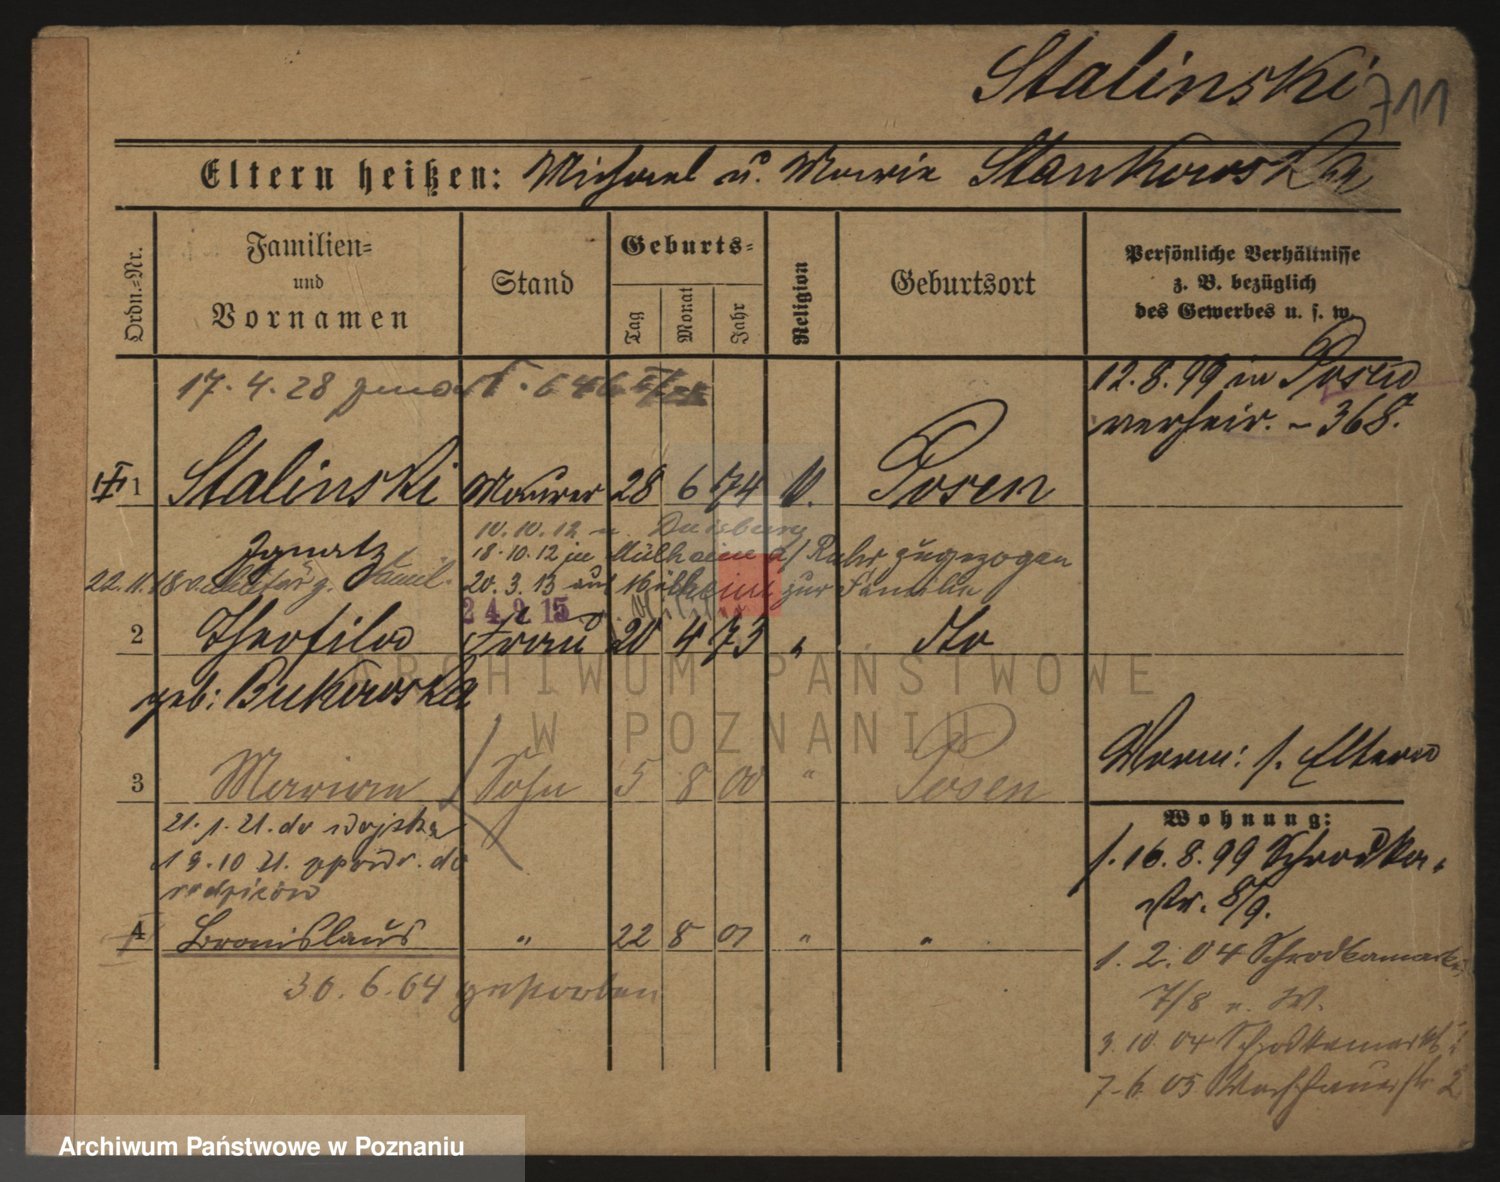 Stalinski
711
Eltern heißen: Michael u. Marie Stankowska
Ordn.-Nr.
Familien-
und
Vornamen
Stand
Geburts-
Tag
Monat
Jahr
Religion
Geburtsort
Persönliche Verhältnisse
z. B. bezüglich
des Gewerbes u. s. w.
17. 4. 28
12. 8. 99 in Posen
verheir. - 368.
1 Stalinski Maurer 28 6 74 Posen
Ignatz
10. 10. 12 n. Duisburg
18. 10. 12 in Mülheim a/ Ruhr zugezogen
22. 11. 18 Famil.
20. 3. 13 aus Mülheim zur Familie
24. 9. 15
2 Theofila Frau 20 4 73 " dto
geb: Bukowska
ARCHIWUM PAŃSTWOWE
W POZNANIU
Vorm: s. Eltern
3 Marian Sohn 5 8 00 " Posen
21. 1. 21. do wojska
19. 10 21. do
rodziców
Wohnung:
16. 8. 99 Schrodka-
str. 8/9.
4 Bronislaus " 22 8 01 " "
30. 6. 04 gestorben
1. 2. 04 Schrodkamarkt
7/8 n. W.
3. 10. 04 Schrodkamarkt
7. 6. 05 2
Archiwum Państwowe w Poznaniu